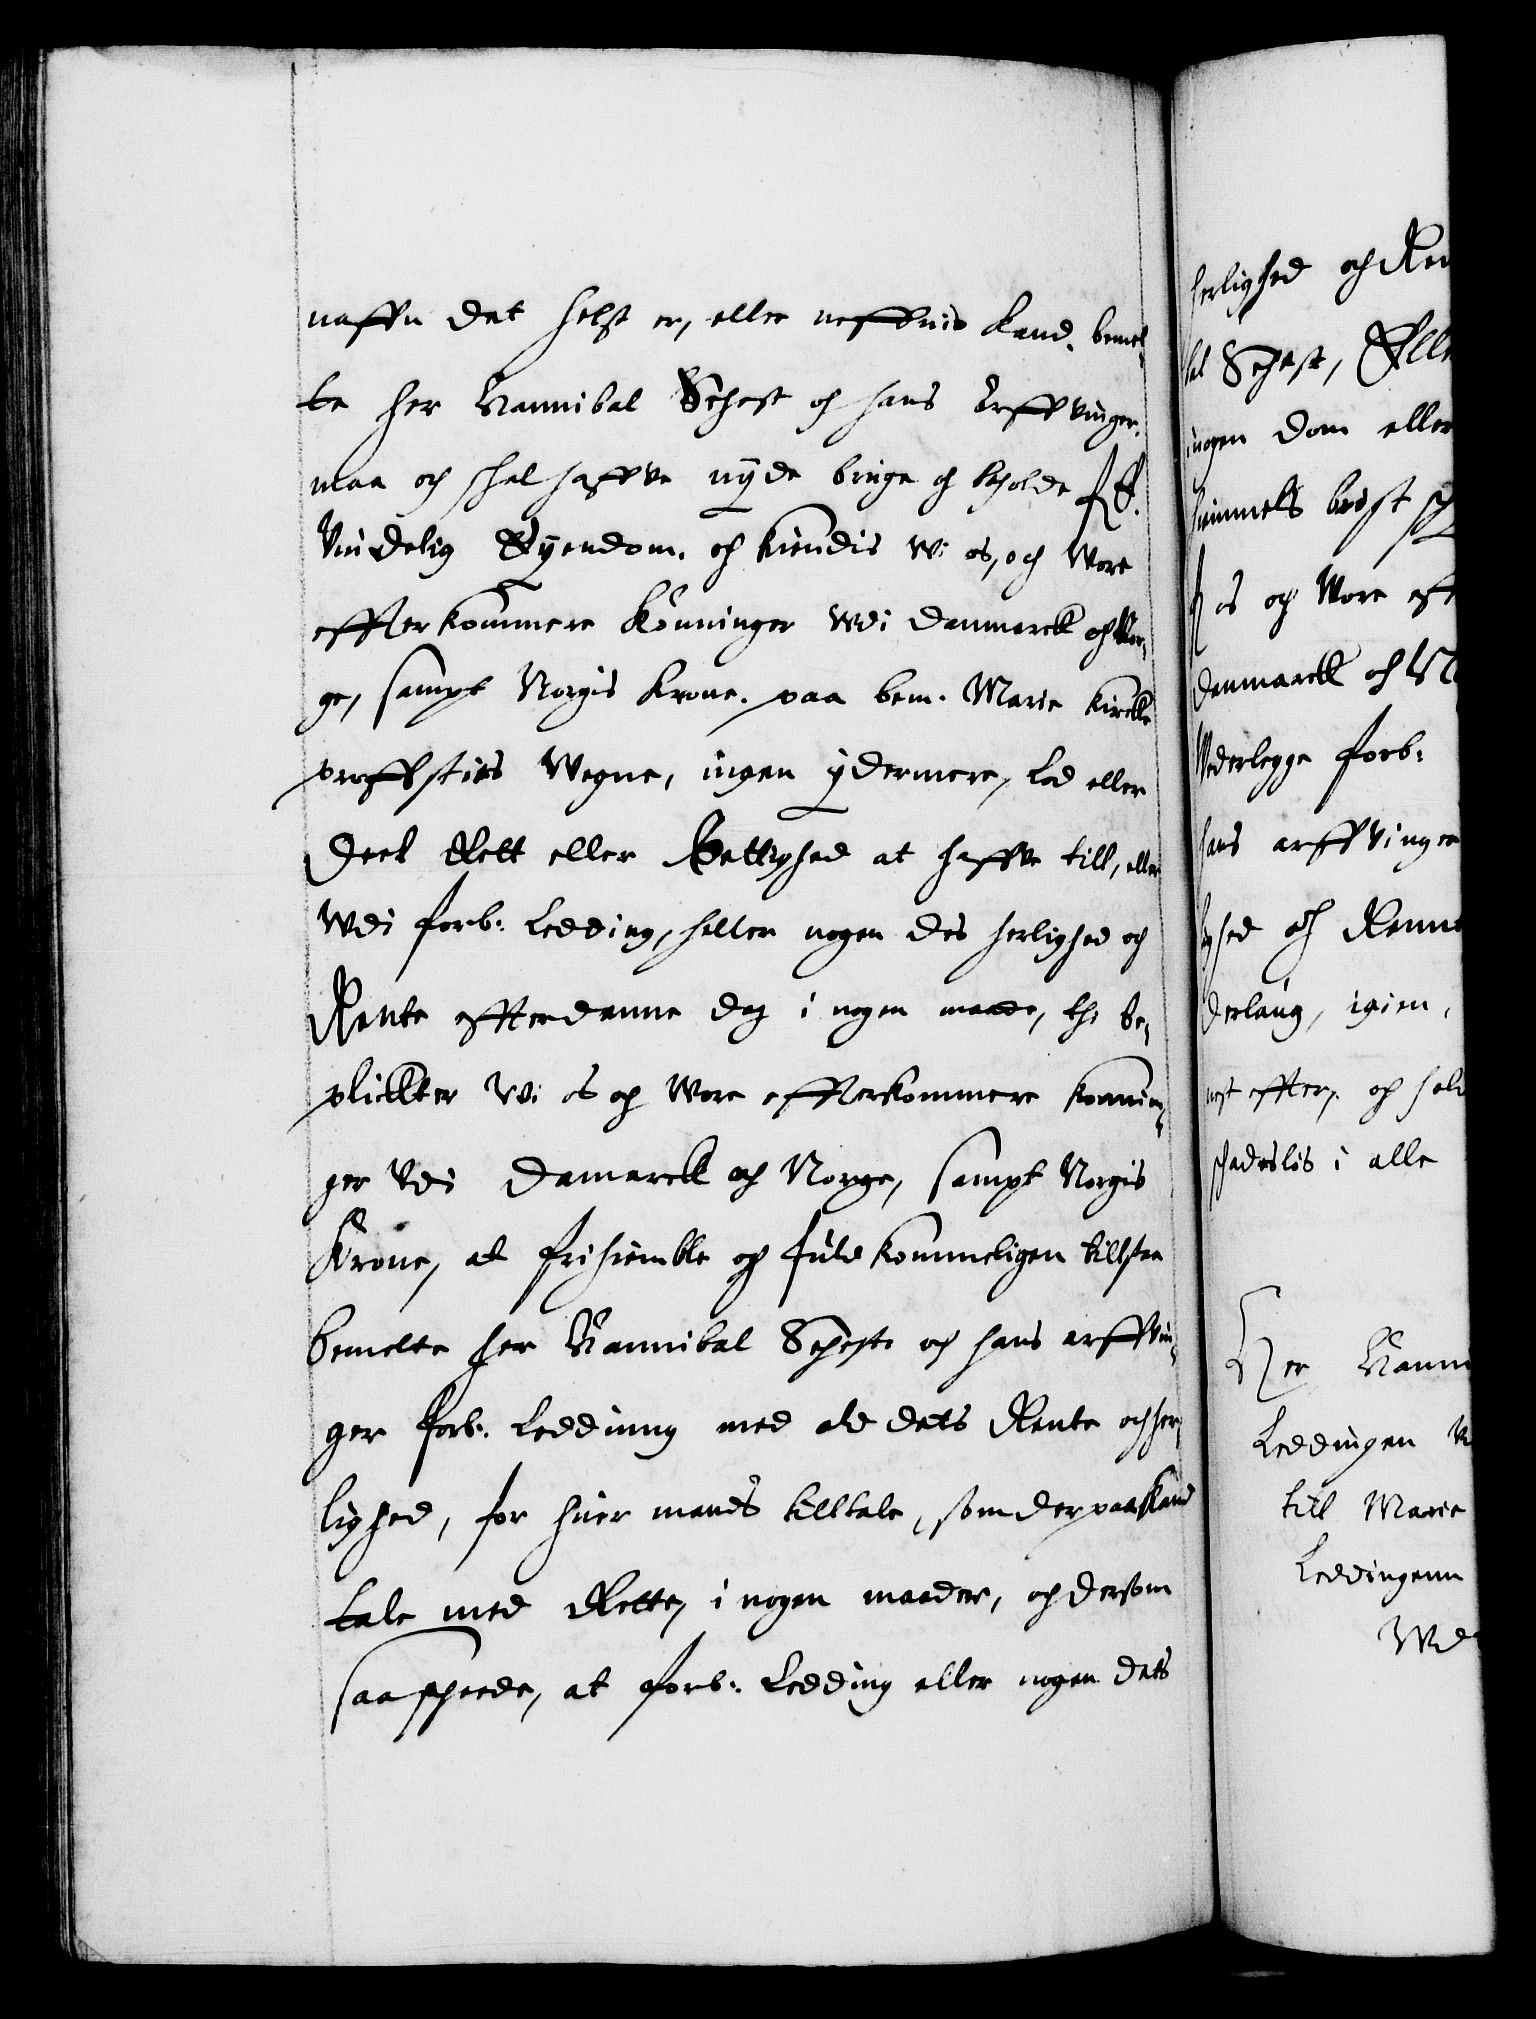 naffn det helst er, eller neffnis kand, bemel¬
te her Hannibal Sehest och hans Arffvinger,
maa och schal haffve nyde bruge och beholde
Vindelig Eyendom, och kiendis Wi os, och Wore
effterkommere Konninger Udi Danmarck och Nor¬
ge, sampt Norgis Krone, paa bem. Marie kircke
proffsties Wegne, ingen ydermere, Lod eller
Deel Rett eller Rettighed at haffve till, eller
Wdi forb: Ledding, heller nogen des herlighed och
Rente effter denne dag i nogen maade, thi be¬
plickter Vi os och Wore effterkommere konnin¬
ger Vdi Damarck och Norge, sampt Norgis
Krone, at frihiemble och fuldkommeligen tillstaa
bemelte her Hannibal Seheste och hans arffvin¬
ger forb. Leddinng med ald dets Rente och her¬
lighed, for huer mands tilltale, som der paa kand
tale med Rette, i nogen maader, och dersom
saa scheede, at forb: Ledding eller nogen dets
herlighed och Ren
bal Sehest, Elle
nogen dom eller
hiemmels brøst
os och Wore eff
Danmarck och N
Wederlegge forb:
hans arffvinger
lighed och Renne
derlaug, igien,
nest effter, och hol
schadesløs i alle
Her Hann
Leddingen
till Marie
Leddingenn